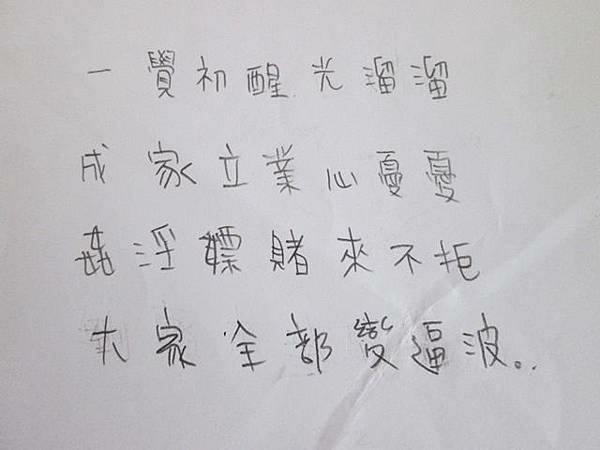 一覺初醒光溜溜
成家立業心憂憂
姦淫嫖賭來不拒
大家全部變逼波。..